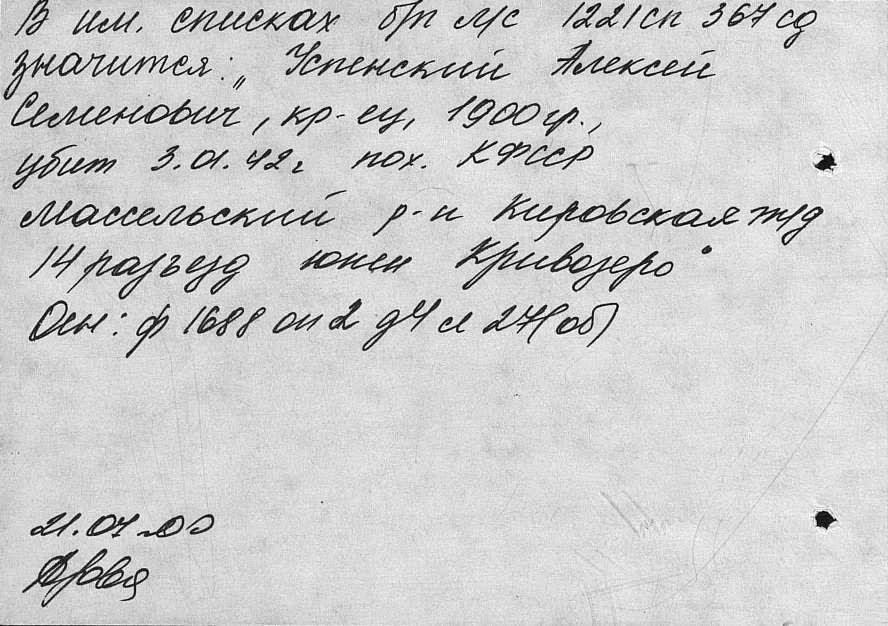 В им. списках б/п л/с 1221 сп 367 сд
значится: „Успенский Алексей
Семенович", кр-ец, 1900 гр.,
убит 3.01.42 г пох. КФССР
Массельский р-н Кировская ж/д
14 разъезд южен Кривозеро"
Осн: ф 1688 оп 2 д 4 л 27 (об)
21.04.00